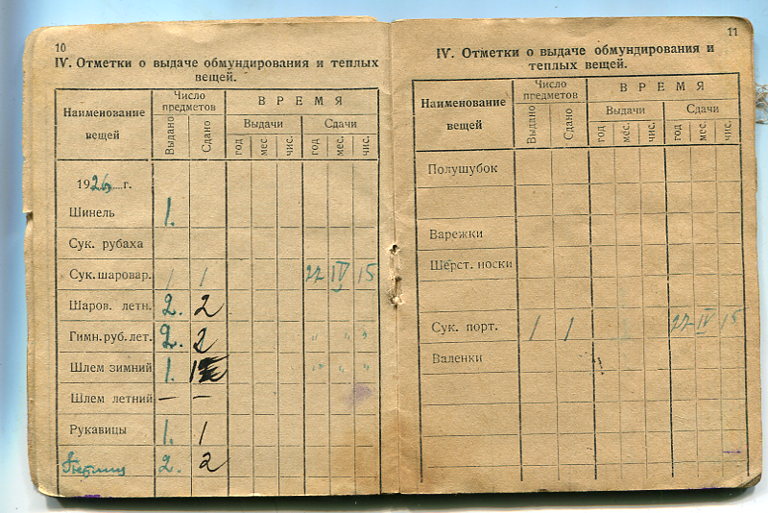 10
IV. Отметки о выдаче обмундирования и теплых
вещей.
Наименование
вещей
Число
предметов
ВРЕМЯ
Выдано
Сдано
Выдачи
Сдачи
год
мес.
чис.
год
мес.
чис.
1926 г.
Шинель 1.
Сук. рубаха
Сук. шаровар. 1 1 27 IV 15
Шаров. летн. 2. 2
Гимн. руб. лет. 2. 2 " " "
Шлем зимний 1. " " "
Шлем летний — —
Рукавицы 1. 1
2. 2
11
IV. Отметки о выдаче обмундирования и
теплых вещей.
Наименование
вещей
Число
предметов
ВРЕМЯ
Выдано
Сдано
Выдачи
Сдачи
год
мес.
чис.
год
мес.
чис.
Полушубок
Варежки
Шерст. носки
Сук. порт. 1 1 27 IV 15
Валенки